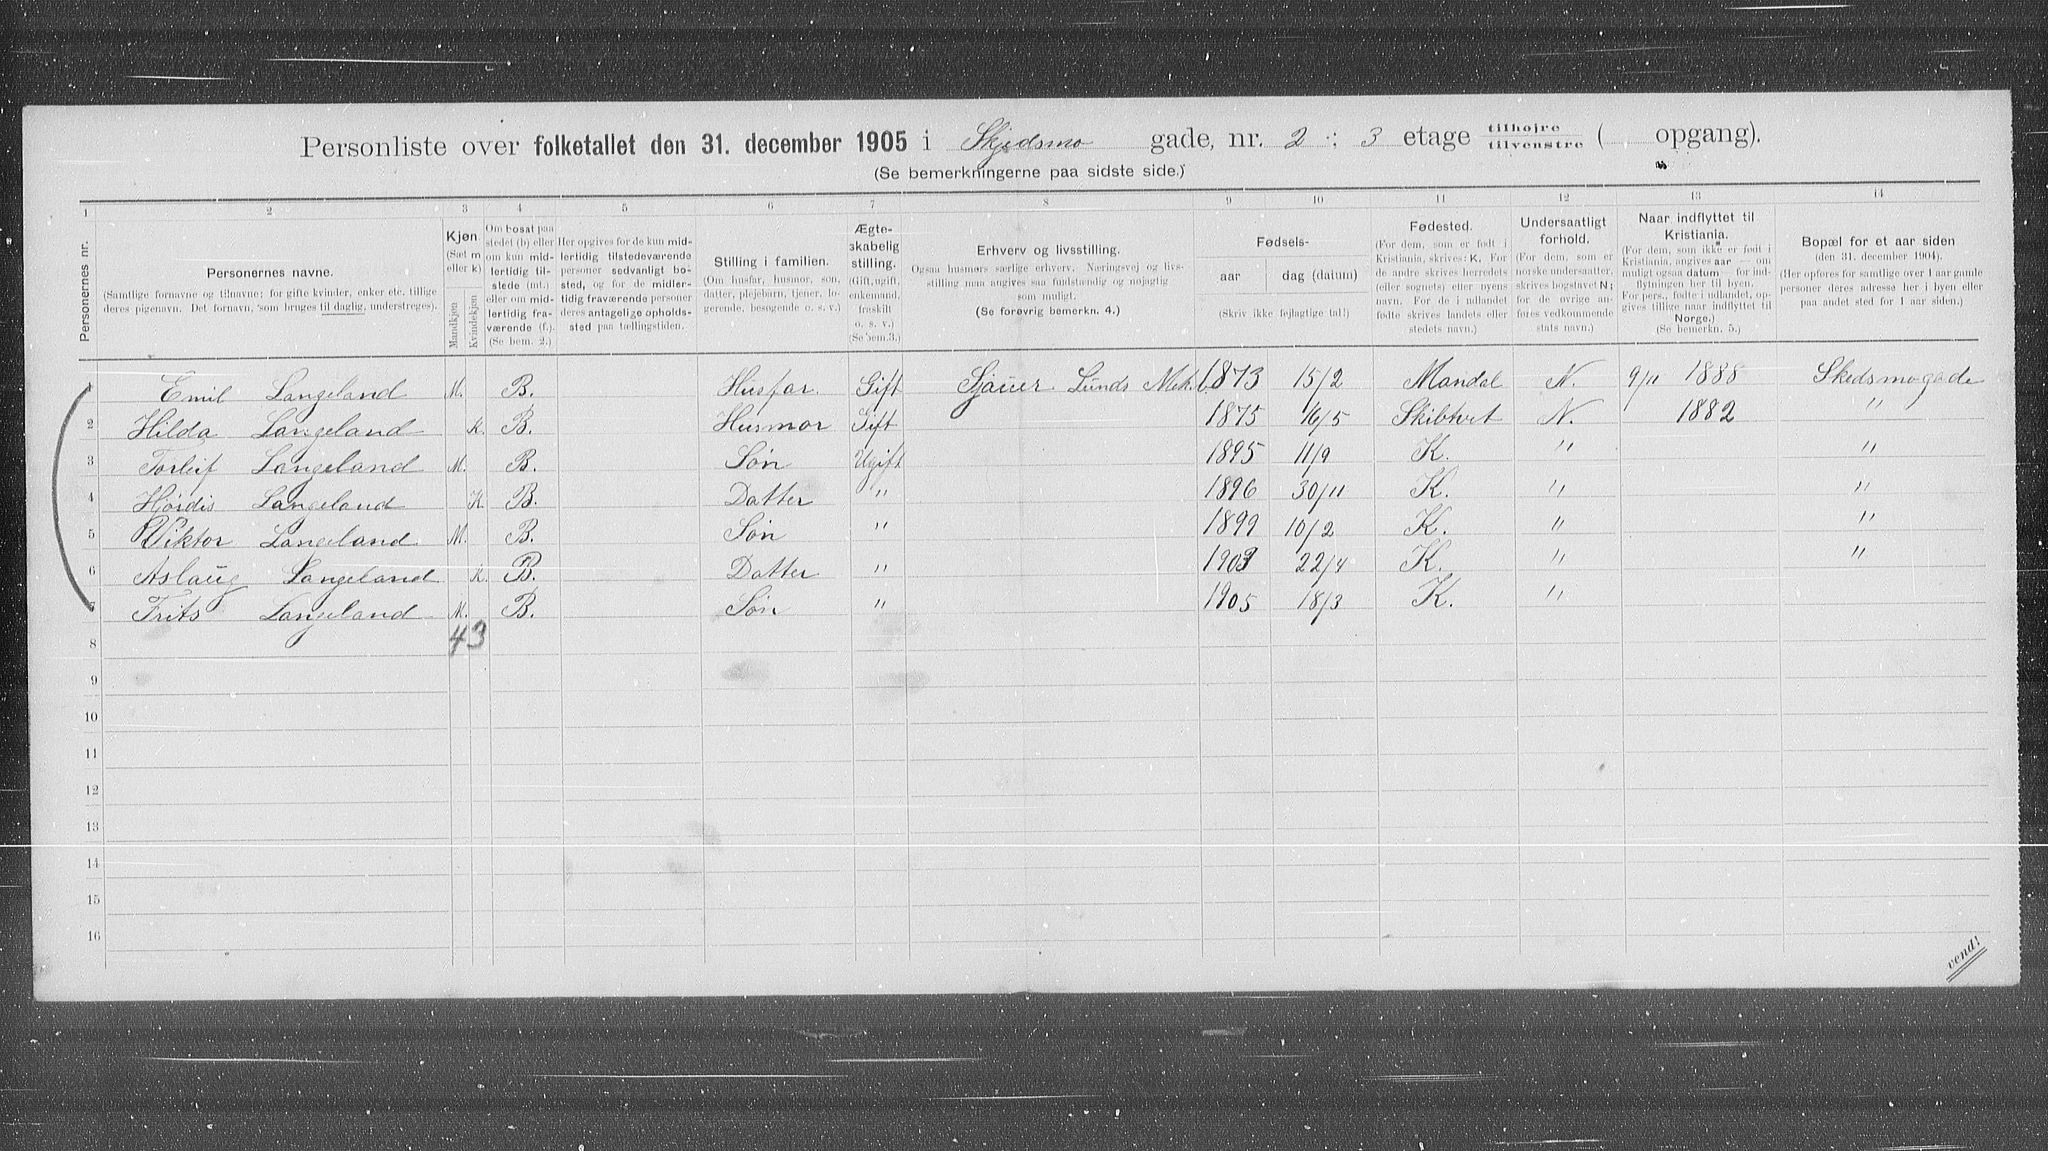 Personliste over folketallet den 31. december 1905 i Skjedsmo gade, nr. 2 : 3 etage tilhøjre tilvenstre ( opgang).
(Se bemerkningerne paa sidste side.)
1 2 3 4 5 6 7 8 9 10 11 12 13 14
Personernes nr.
Personernes navne.
(Samtlige fornavne og tilnavne; for gifte kvinder, enker etc. tillige
deres pigenavn. Det fornavn, som bruges til daglig, understreges).
Kjøn
(Sæt m
eller k)
Mandkjøn
Kvindekjøn
Om bosat paa
stedet (b) eller
om kun mid-
lertidig til-
stede (mt.)
eller om mid-
lertidig fra-
værende (f.).
(Se bem. 2.)
Her opgives for de kun mid-
lertidig tilstedeværende
personer sedvanligt bo-
sted, og for de midler-
tidig fraværende personer
deres antagelige opholds-
sted paa tællingstiden.
Stilling i familien.
(Om husfar, husmor, søn,
datter, plejebarn, tjener, lo-
gerende, besøgende o. s. v.)
Ægte-
skabelig
stilling.
(Gift, ugift,
enkemand,
fraskilt
o. s. v.)
(Se bem.3.)
Erhverv og livsstilling.
Ogsaa husmors særlige erhverv. Næringsvej og livs-
stilling maa angives saa fuldstændig og nøjagtig
som muligt.
(Se forøvrig bemerkn. 4.)
Fødsels-
aar
dag (datum)
(Skriv ikke fejlagtige tal!)
Fødested.
(For dem, som er født i
Kristiania, skrives: K. For
de andre skrives herredets
(eller sognets) eller byens
navn. For de i udlandet
fødte skrives landets eller
stedets navn.)
Undersaatligt
forhold.
(For dem, som er
norske undersaatter,
skrives bogstavet N;
for de øvrige an-
føres vedkommende
stats navn.)
Naar indflyttet til
Kristiania.
(For dem, som ikke er født i
Kristiania, angives aar — om
muligt ogsaa datum — for ind-
flytningen her til byen.
For pers., fødte i udlandet, op-
gives tillige naar indflyttet til
Norge.)
(Se bemerkn. 5.)
Bopæl for et aar siden
(den 31. december 1904).
(Her opføres for samtlige over 1 aar gamle
personer deres adresse her i byen eller
paa andet sted for 1 aar siden.)
1 Emil Langeland M. B. Husfar. Gift Sjauer Lunds Mek. 1873 15/2 Mandal N. 9/11 1888 Skedsmogade
2 Hilda Langeland K. B. Husmor Gift 1875 16/5 Skibtvet N. 1882 "
3 Torleif Langeland M. B. Søn Ugift 1895 11/9 K. " "
4 Hjørdis Langeland K. B. Datter " 1896 30/11 K. " "
5 Viktor Langeland M. B. Søn " 1899 10/2 K. " "
6 Aslaug Langeland K. B. Datter " 1903 22/4 K. " "
7 Frits Langeland M. B. Søn " 1905 18/3 K. "
8 43
9
10
11
12
13
14
15
16
vend!